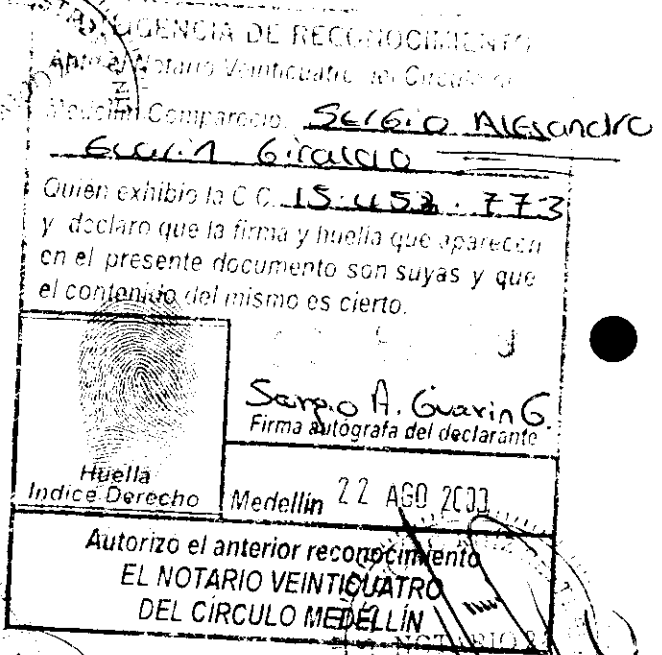 DILIGENCIA DE RECONOCIMIENTO
Ante el Notario Veinticuatro del Circulo de
Medellin Compareció Sergio Alejandro
Guarin Giraldo
Quién exhibio la C.C. 15.452.773
y declaro que la firma y huella que aparecen
en el presente documento son suyas y que
el contenido del mismo es cierto.
Sergio A. Guarin G.
Firma autógrafa del declarante
Huella
Indice Derecho
Medellín 22 AGO
Autorizo el anterior reconocimiento
EL NOTARIO VEINTICUATRO
DEL CÍRCULO MEDELLÍN
NOTARIO